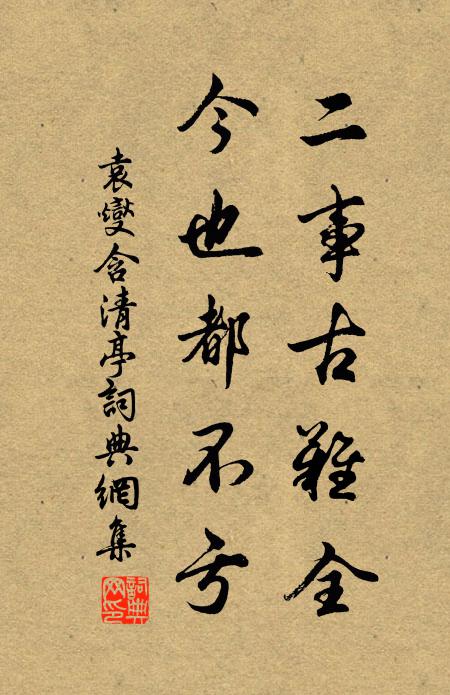 二事古難全
今也都不亏
袁燮含清亭詞典網集
詞典网印